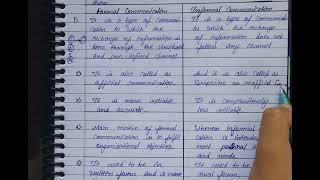 Formal Communication
Informal Communication
1) It is a type of communi-
cation in which the
exchange of information is
done through the structured
and pre-defined channel.
It is a type of communi-
cation in which the exchange
of information does not
follow any channel
2) It is also called as
official communication.
And it is also called as
Grapevine an unofficial Co
3) It is more reliable
and accurate.
It is comparatively
less reliable.
4) Main motive of formal
communication is to fulfil
organisational objective.
Whereas informal
cation is
meet personal
and needs.
5) It used to be in
written form and is more
It used to be
oral form.